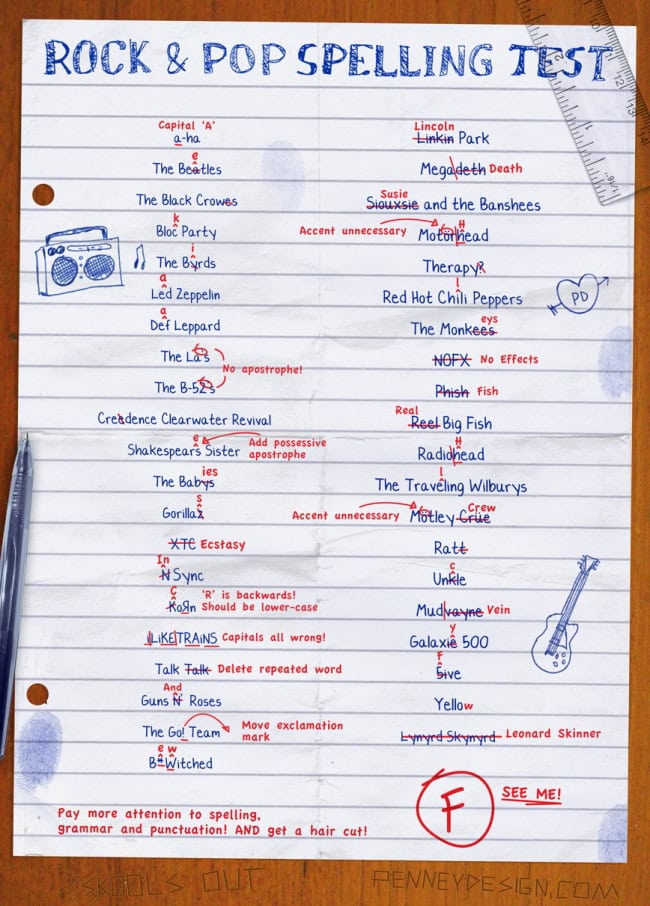 ROCK & POP SPELLING TEST
Capital 'A'
a-ha
e
The Beatles
The Black Crowes
k
Bloc Party
i
The Byrds
a
Led Zeppelin
a
Def Leppard
The La's
No apostrophe!
The B-52's
Creedence Clearwater Revival
e
Shakespears Sister
Add possessive
apostrophe
ies
The Babys
s
Gorillaz
XTC Ecstasy
In
N Sync
C
KoЯn
'R' is backwards!
Should be lower-case
iLiKETRAiNS Capitals all wrong!
Talk Talk Delete repeated word
And
Guns N' Roses
The Go! Team
Move exclamation
mark
e w
B*Witched
Lincoln
Linkin Park
Megadeth Death
Susie
Siouxsie and the Banshees
Accent unnecessary
H
Motörhead
Therapy?
l
Red Hot Chili Peppers
eys
The Monkees
NOFX No Effects
Phish Fish
Real
Reel Big Fish
H
Radiohead
l
The Traveling Wilburys
Accent unnecessary
Crew
Mötley Crüe
Ratt
c
Unkle
Mudvayne Vein
y
Galaxie 500
F
5ive
Yellow
Lynyrd Skynyrd Leonard Skinner
PD
F
SEE ME!
Pay more attention to spelling,
grammar and punctuation! AND get a hair cut!
SKOOLS OUT
PENNEYDESIGN.COM